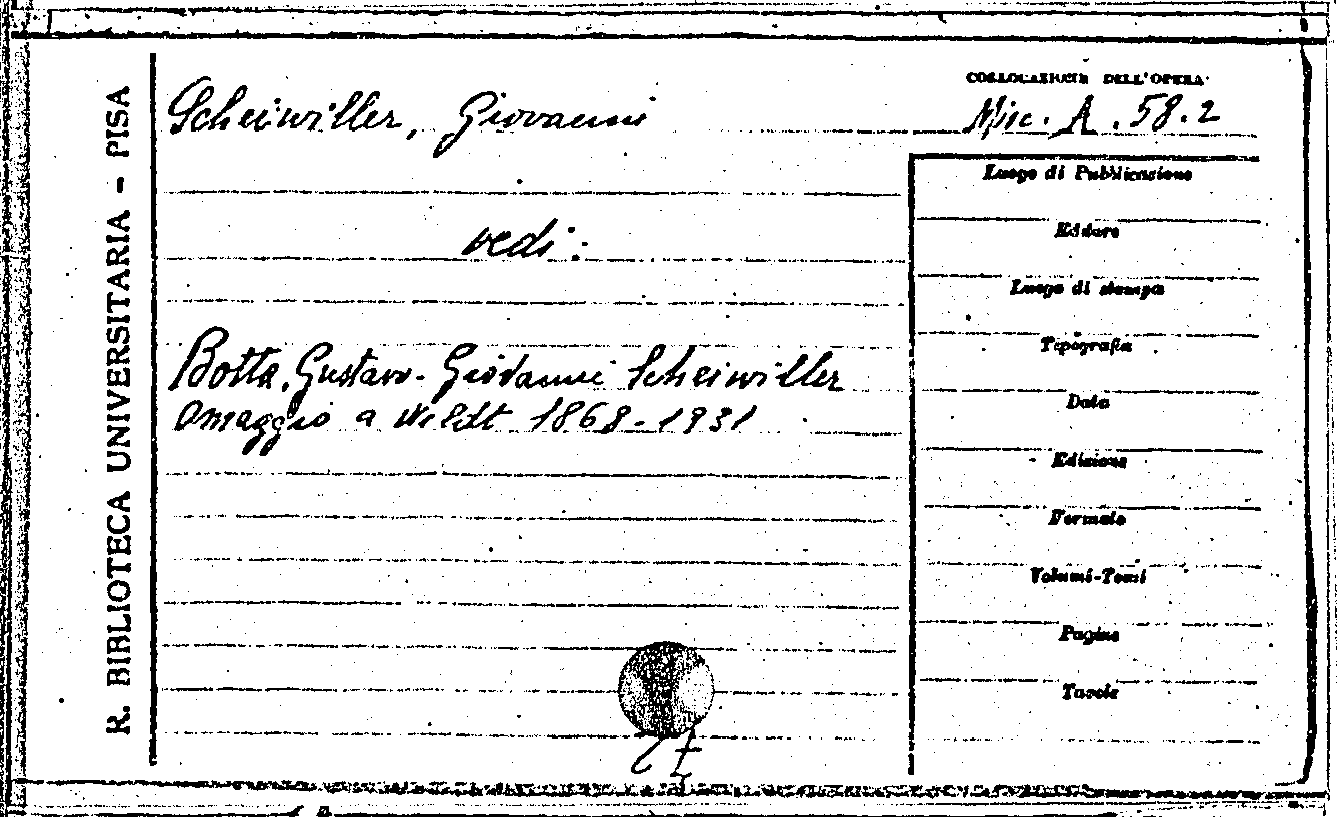 R. BIBLIOTECA UNIVERSITARIA - PISA
COLLOCAZIONE DELL'OPERA
Scheiwiller, Giovanni
Misc. A. 58.2
vedi:
Botta, Gustavo - Giovanni Scheiwiller
Omaggio a Wildt 1868-1931
Luogo di Pubblicazione
Editore
Luogo di stampa
Tipografia
Data
Edizione
Formato
Volumi-Tomi
Pagine
Tavole